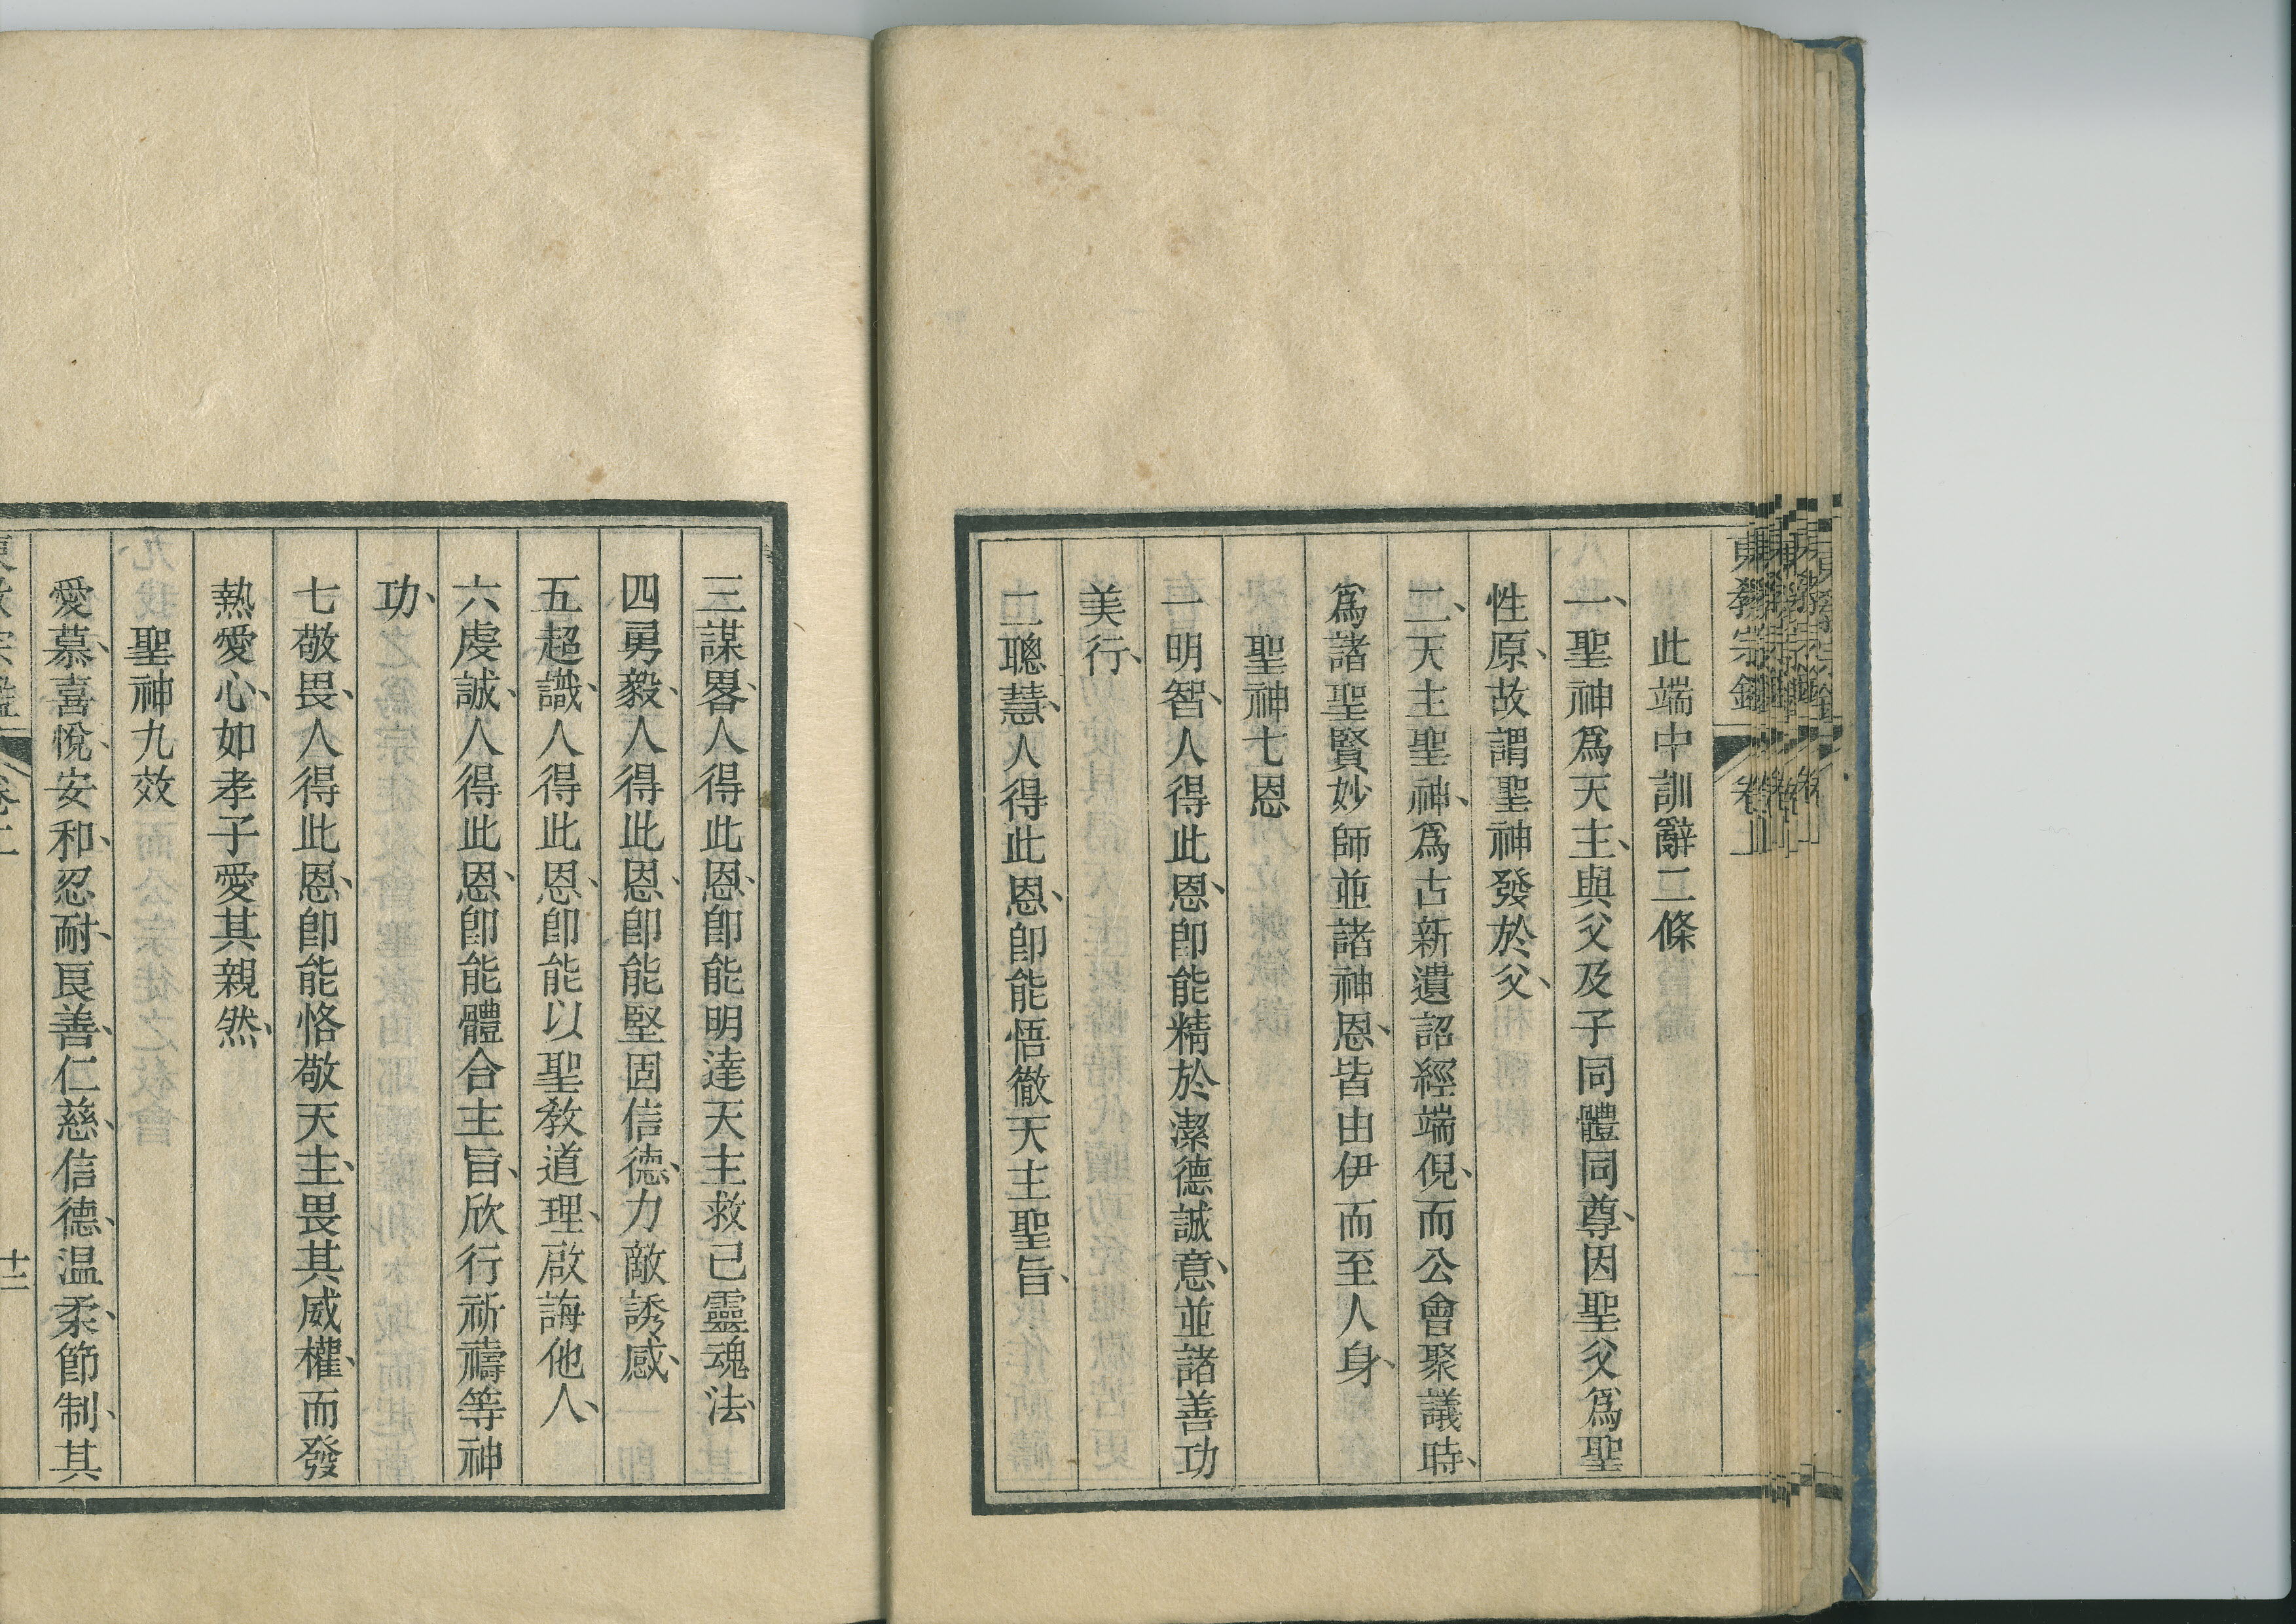 東教宗鑑
卷上
十一
此端中訓辭二條
一、聖神爲天主、與父及子同體同尊、因聖父爲聖
性原、故謂聖神發於父、
二、天主聖神、爲古新遺詔經端倪、而公會聚議時、
爲諸聖賢妙師並諸神恩、皆由伊而至人身、
聖神七恩
一明智、人得此恩、卽能精於潔德誠意、並諸善功
美行、
二聰慧、人得此恩、卽能悟徹天主聖旨、
三謀畧、人得此恩、卽能明達天主救己靈魂法、
四勇毅、人得此恩、卽能堅固信德、力敵誘感、
五超識、人得此恩、卽能以聖敎道理、啟誨他人、
六虔誠、人得此恩、卽能體合主旨、欣行祈禱等神
功、
七敬畏、人得此恩、卽能恪敬天主、畏其威權、而發
熱愛心、如孝子愛其親然、
聖神九效
愛慕、喜悅、安和、忍耐、良善、仁慈、信德、温柔、節制、其
十二